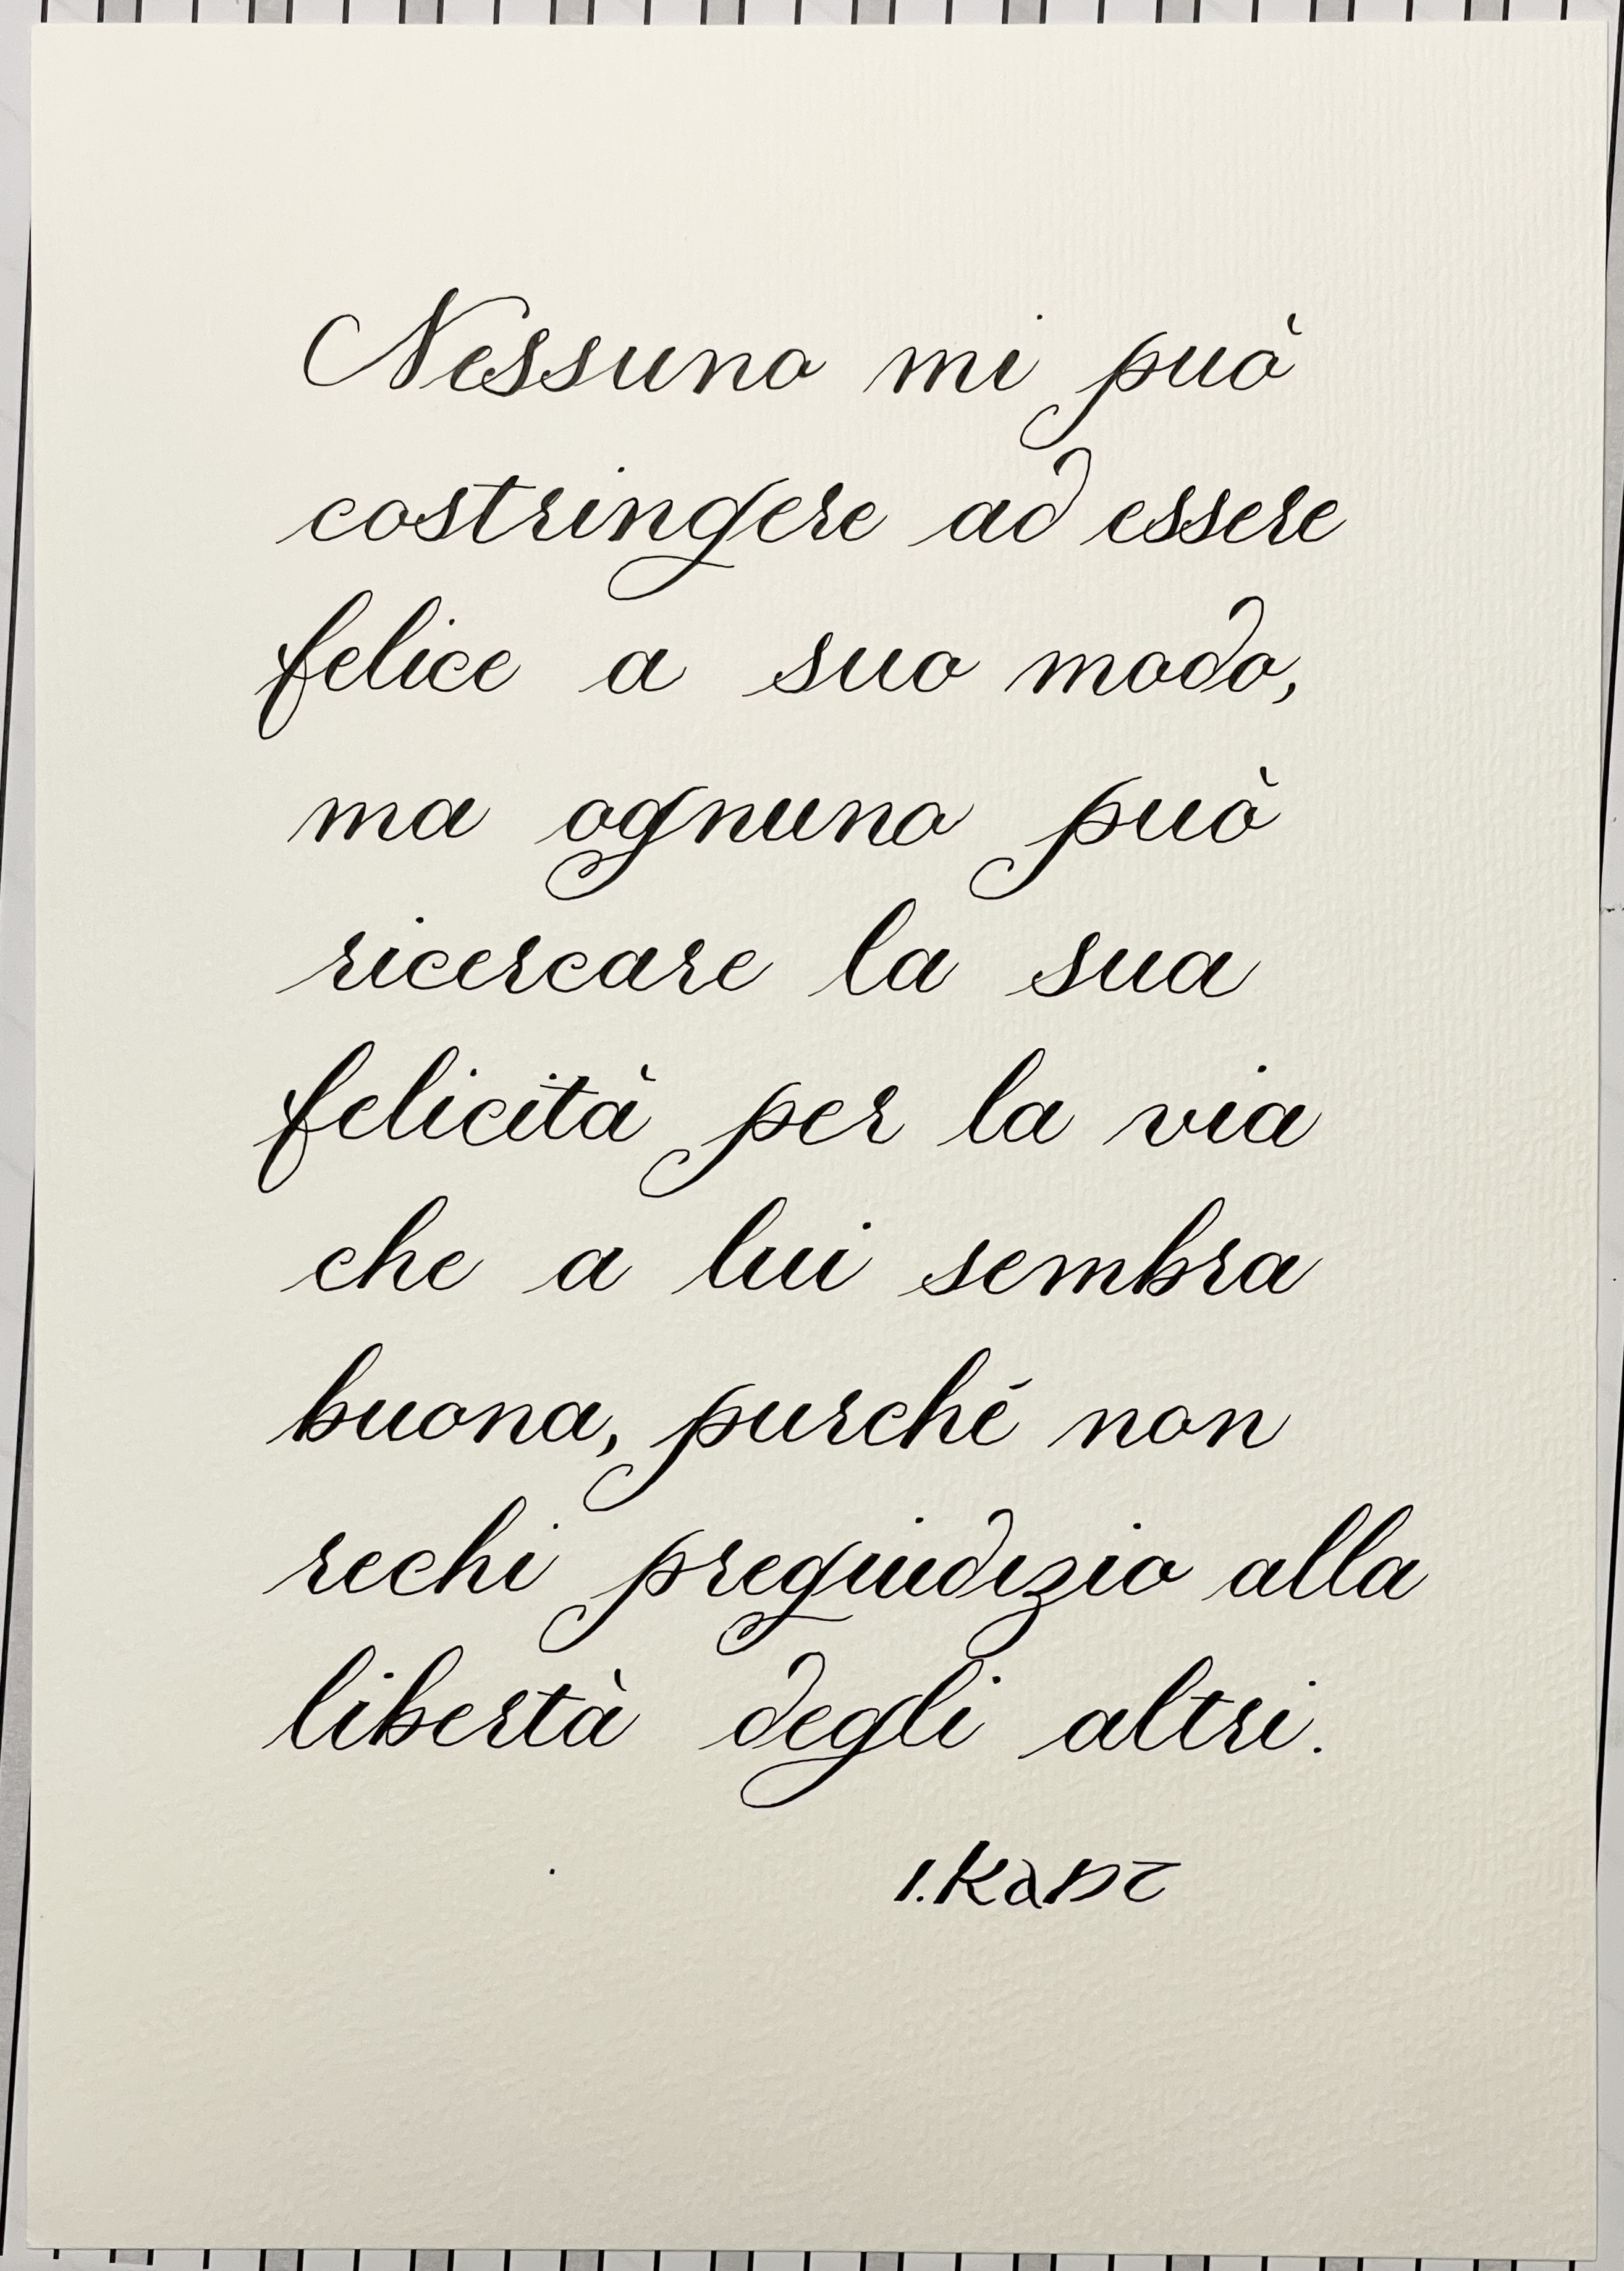 Nessuno mi può
costringere ad essere
felice a suo modo,
ma ognuno può
ricercare la sua
felicità per la via
che a lui sembra
buona, purché non
rechi pregiudizio alla
libertà degli altri.
I. Kant